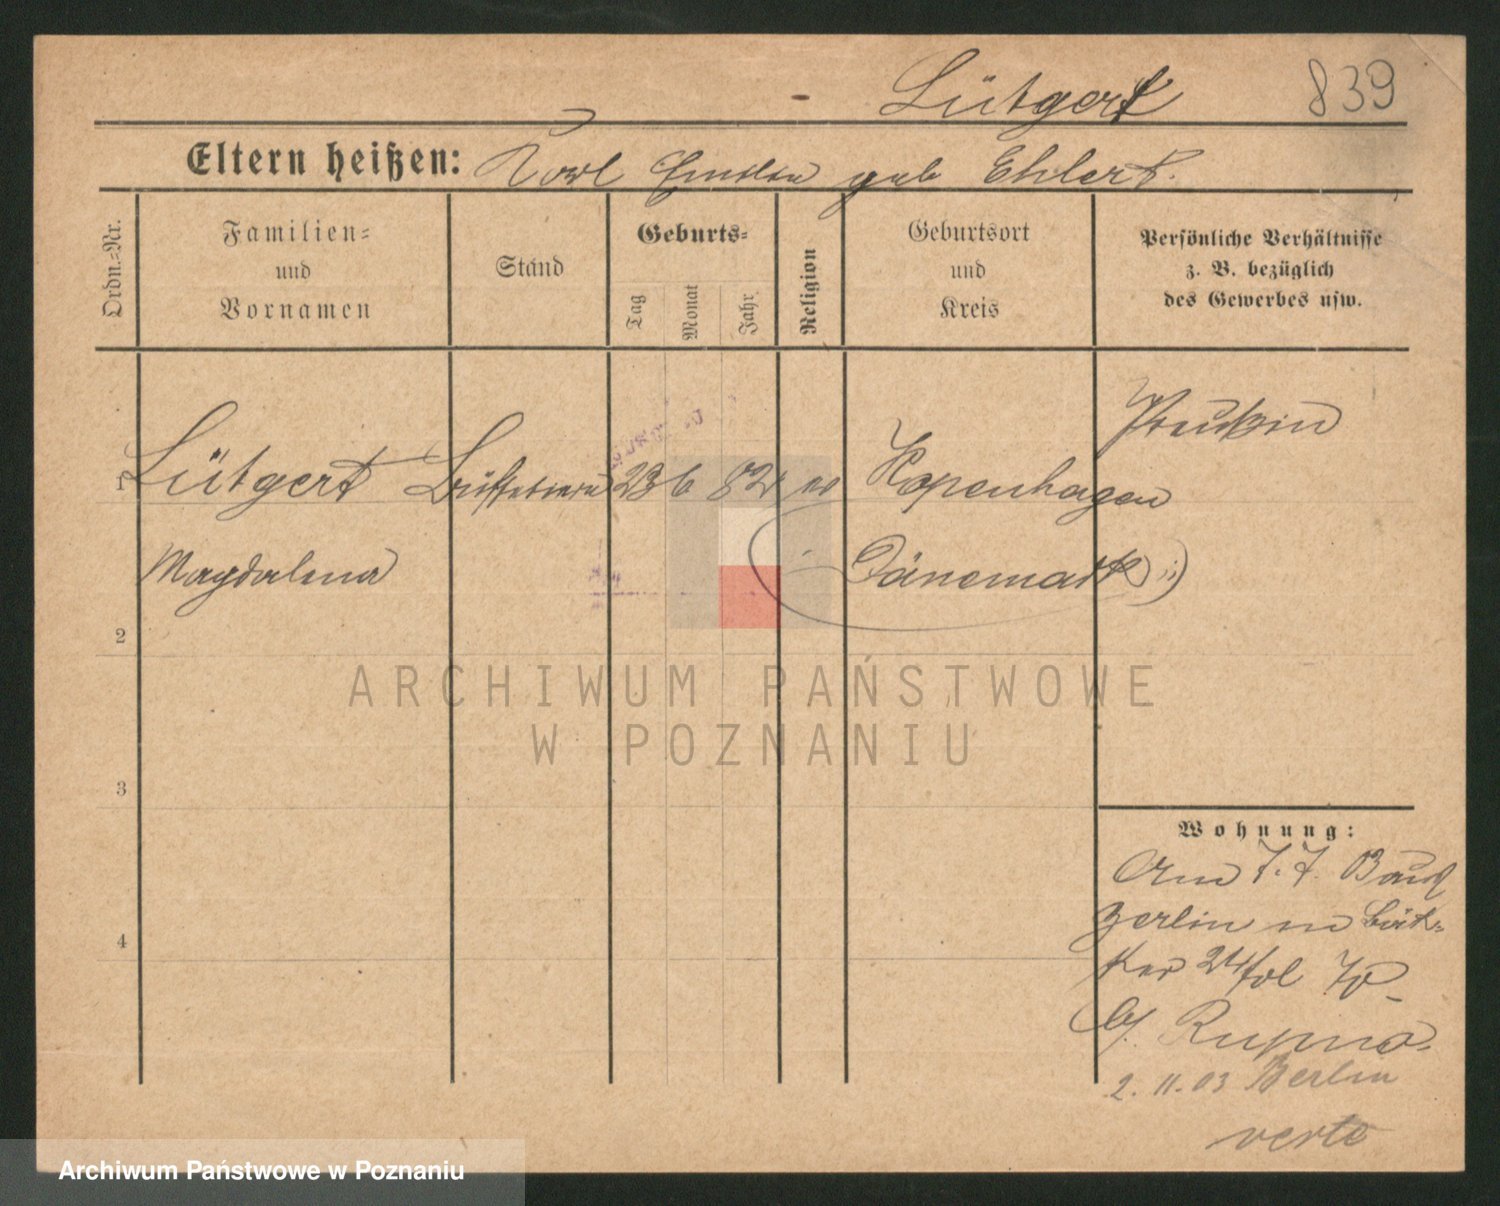 Lütgert 839
Eltern heißen: Karl Emilie geb Ehlert.
Ordn.-Nr.
Familien-
und
Vornamen
Stand
Geburts-
Tag
Monat
Jahr
Religion
Geburtsort
und
Kreis
Persönliche Verhältnisse
z. B. bezüglich
des Gewerbes usw.
Preußin
1 Lütgert Büffetiere 23 6 82 Kopenhagen
Magdalena Dänemark
2
3
4
Wohnung:
Am 7.7.
Berlin
24
2. 11. 03 Berlin
verte
ARCHIWUM PAŃSTWOWE
W POZNANIU
Archiwum Państwowe w Poznaniu